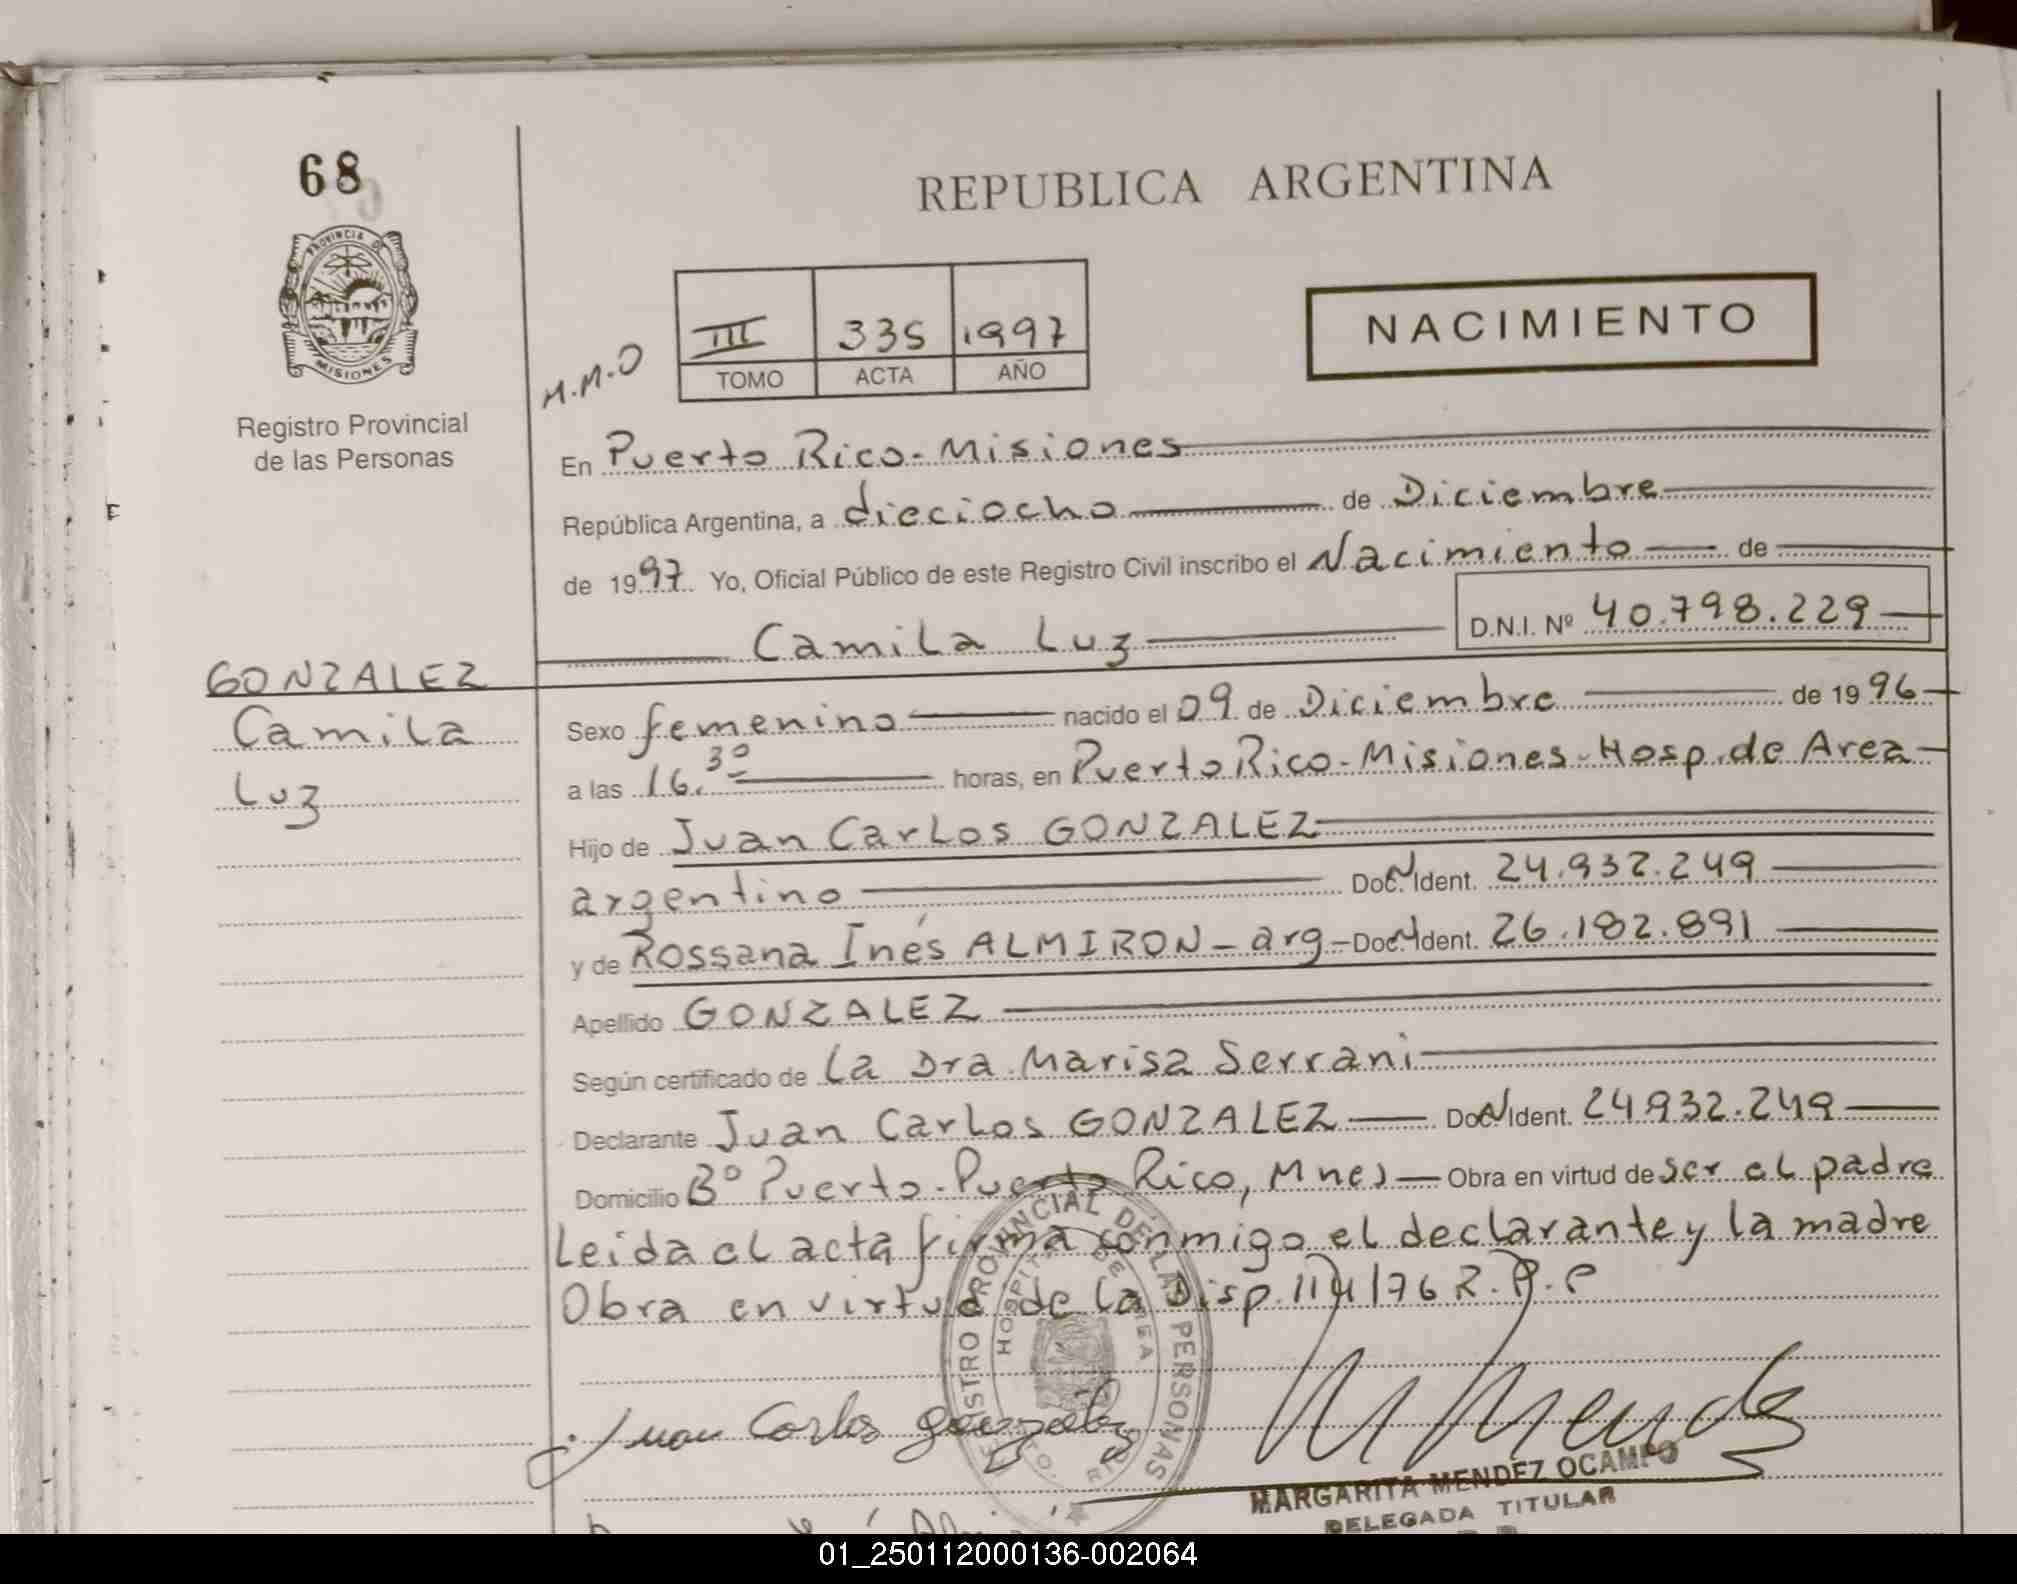 68
REPUBLICA ARGENTINA
PROVINCIA DE
MISIONES
Registro Provincial
de las Personas
M.M.O
III 335 1997
TOMO ACTA AÑO
NACIMIENTO
En Puerto Rico - Misiones
República Argentina, a dieciocho de Diciembre
de 1997 Yo, Oficial Público de este Registro Civil inscribo el Nacimiento de
Camila Luz D.N.I. Nº 40.798.229
GONZALEZ
Camila
Luz
Sexo femenino nacido el 09 de Diciembre de 1996
a las 16.30 horas, en Puerto Rico - Misiones - Hosp. de Area
Hijo de Juan Carlos GONZALEZ
argentino Doc. Ident. 24.932.249
y de Rossana Inés ALMIRON - arg - Doc. Ident. 26.182.891
Apellido GONZALEZ
Según certificado de La Dra Marisa Serrani
Declarante Juan Carlos GONZALEZ Doc. Ident. 24932.249
Domicilio Bº Puerto - Puerto Rico, Mnes Obra en virtud de ser el padre
Leida el acta firma conmigo el declarante y la madre
Obra en virtud de la Disp. 76 R.P.P
REGISTRO PROVINCIAL DE LAS PERSONAS
HOSPITAL DE AREA
PTO. RICO
Juan Carlos Gonzalez
MARGARITA MENDEZ OCAMPO
DELEGADA TITULAR
01_250112000136-002064